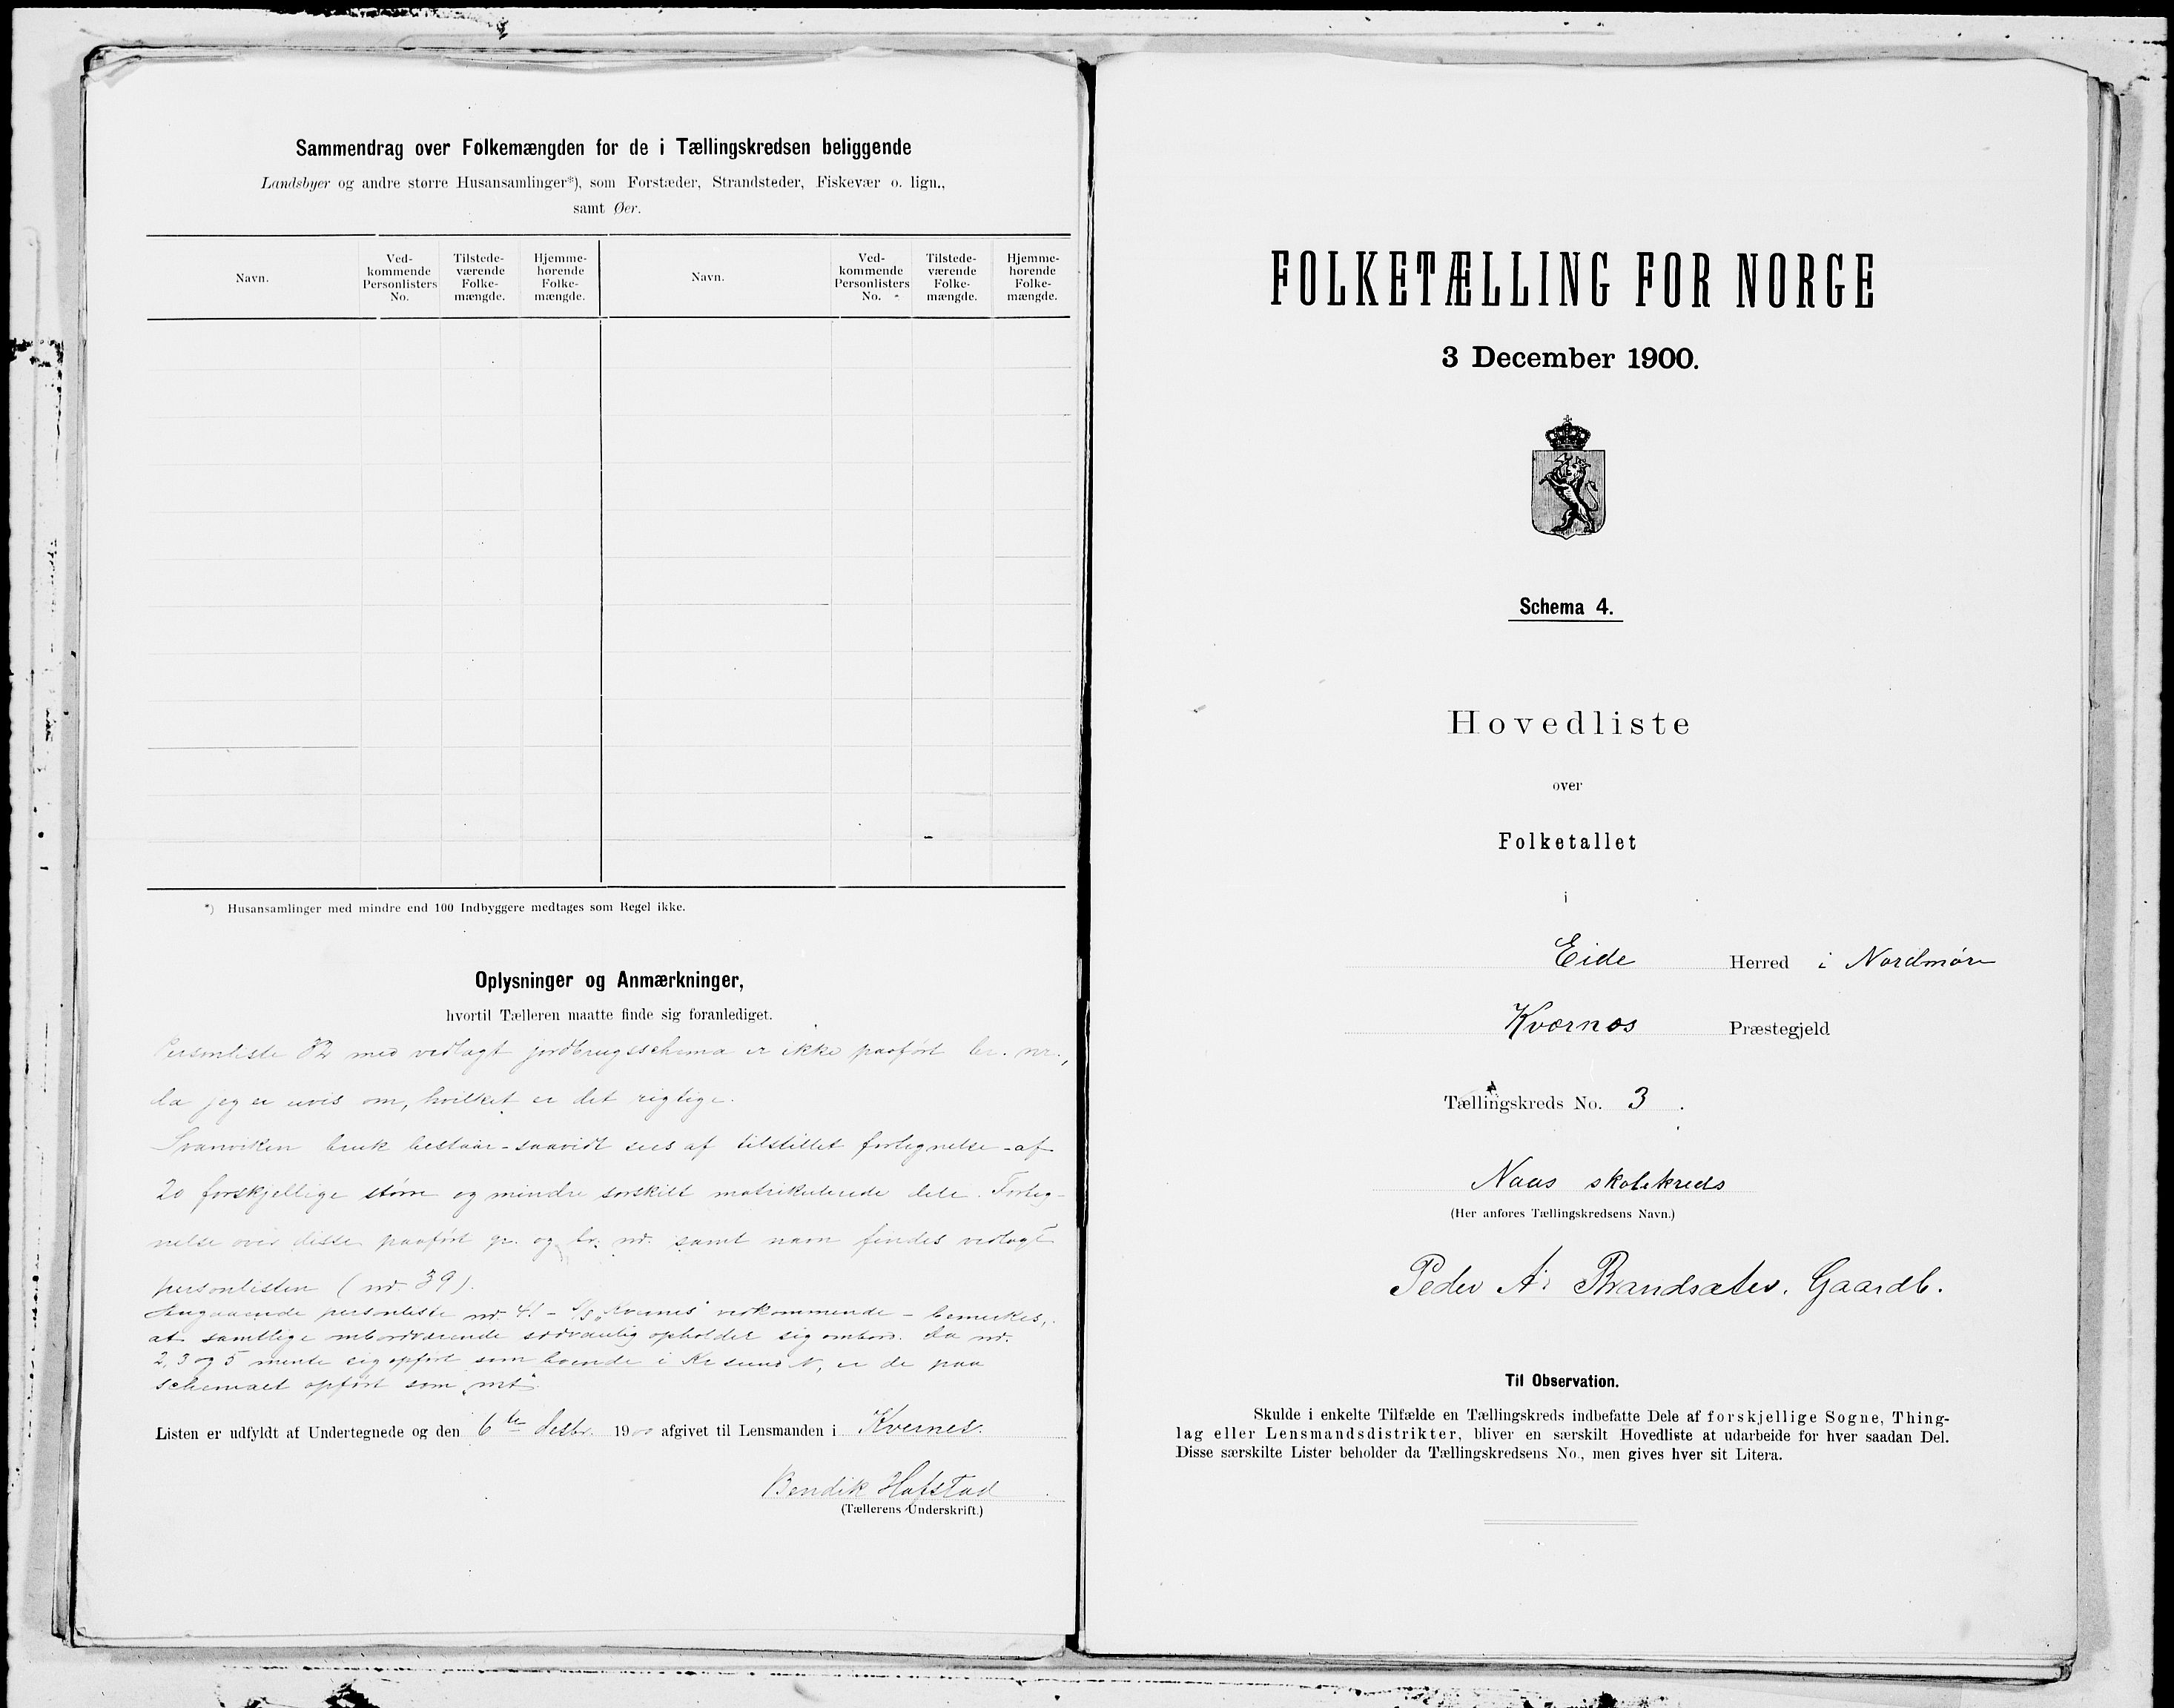 Sammendrag over Folkemængden for de i Tællingskredsen beliggende
Landsbyer og andre større Husansamlinger*), som Forstæder, Strandsteder, Fiskevær o. lign.,
samt Øer.
Navn.
Ved-
kommende
Personlisters
No.
Tilstede-
værende
Folke-
mængde.
Hjemme-
hørende
Folke-
mængde.
Navn.
Ved-
kommende
Personlisters
No.
Tilstede-
værende
Folke-
mængde.
Hjemme-
hørende
Folke-
mængde.
*) Husansamlinger med mindre end 100 Indbyggere medtages som Regel ikke.
Oplysninger og Anmærkninger,
hvortil Tælleren maatte finde sig foranlediget.
Personliste 82 med vedlagt jordbrugsschema er ikke paaført br. nr.,
da jeg er uvis om, hvilket er det rigtige.
Svanviken bruk bestaar - saavidt sees af tilstillet fortegnelse - af
20 forskjellige større og mindre særskilt matrikulerede dele. Forteg-
nelse over disse paaført gr. og br. nr. samt navn findes vedlagt
personlisten (nr. 39).
Angaaende personliste nr. 41 - "Kvernes" vedkommende - bemerkes,
at samtlige ombordværende sædvanlig opholder sig ombord. Da nr.
2, 3 og 5 mente sig opført som boende i Kr.sund N, er de paa
schemaet opført som "mt".
Listen er udfyldt af Undertegnede og den 6te desbr. 1900 afgivet til Lensmanden i Kvernes.
Bendik Hofstad
(Tællerens Underskrift.)
FOLKETÆLLING FOR NORGE
3 December 1900.
Schema 4.
Hovedliste
over
Folketallet
i
Eide Herred i Nordmøre
Kværnæs Præstegjeld
Tællingskreds No. 3.
Naas skolekreds
(Her anføres Tællingskredsens Navn.)
Peder A. Brandsæter, Gaardb.
Til Observation.
Skulde i enkelte Tilfælde en Tællingskreds indbefatte Dele af forskjellige Sogne, Thing-
lag eller Lensmandsdistrikter, bliver en særskilt Hovedliste at udarbeide for hver saadan Del.
Disse særskilte Lister beholder da Tællingskredsens No., men gives hver sit Litera.